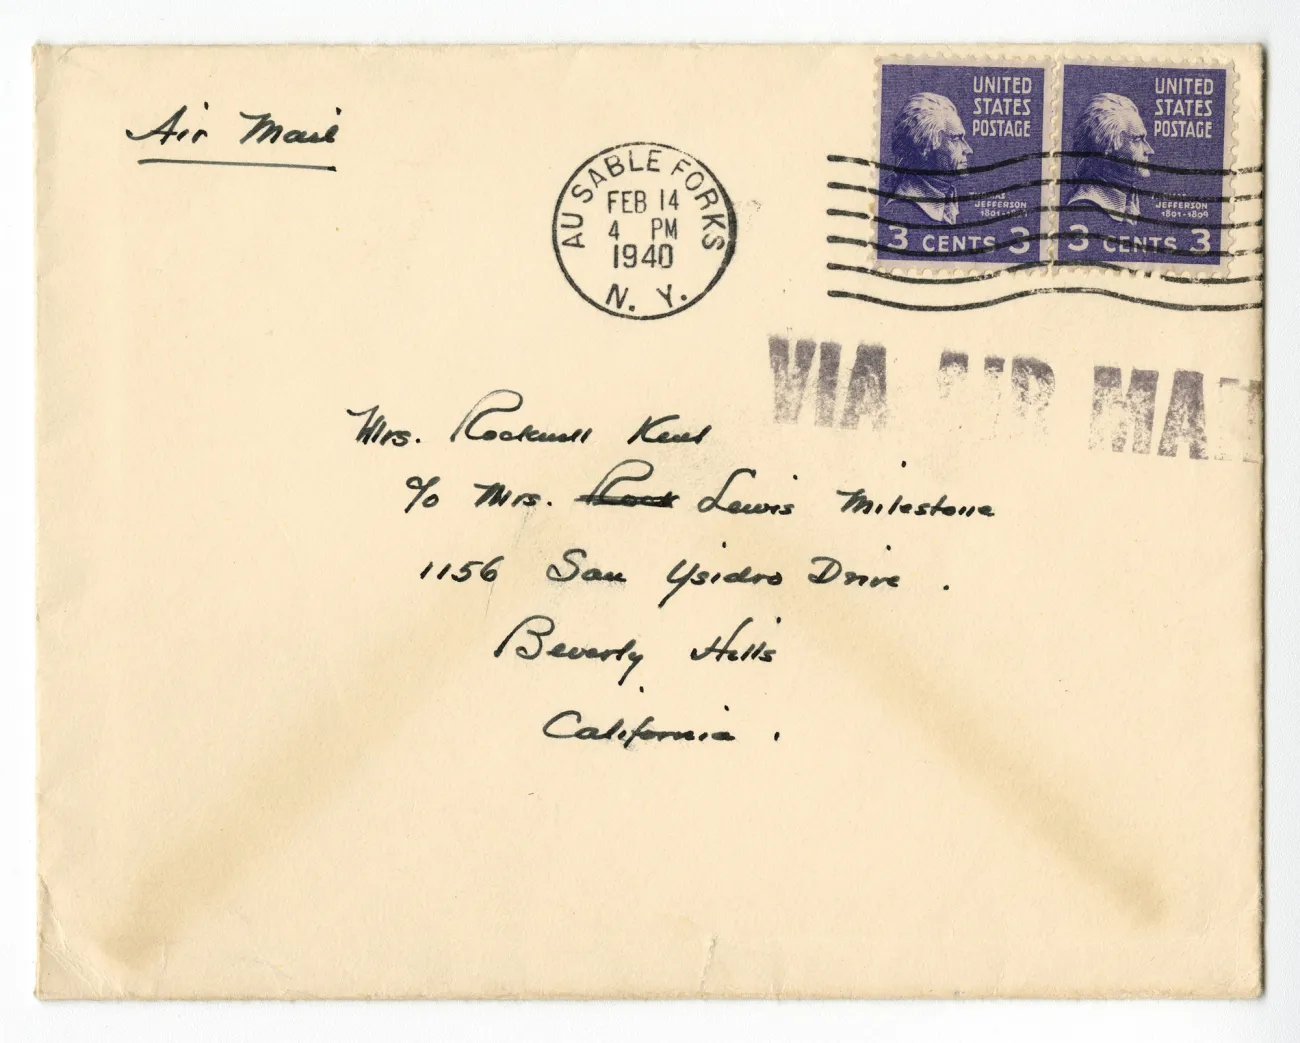 Air Mail
AU SABLE FORKS
FEB 14
4 PM
1940
N. Y.
UNITED STATES POSTAGE
THOMAS JEFFERSON
1801-1809
3 CENTS 3
UNITED STATES POSTAGE
THOMAS JEFFERSON
1801-1809
3 CENTS 3
VIA AIR MAIL
Mrs. Rockwell Kent
c/o Mrs. Rock Lewis Milestone
1156 San Ysidro Drive.
Beverly Hills
California.